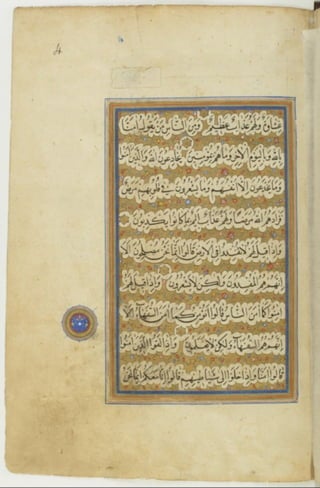 4
غشاوة ولهم عذاب عظيم ومن الناس من يقول امنا
بالله وباليوم الاخر وما هم بمؤمنين يخادعون الله والذين امنوا
وما يخدعون الا انفسهم وما يشعرون في قلوبهم مرض
فزادهم الله مرضا ولهم عذاب اليم بما كانوا يكذبون
واذا قيل لهم لا تفسدوا في الارض قالوا انما نحن مصلحون الا
انهم هم المفسدون ولكن لا يشعرون واذا قيل لهم
امنوا كما امن الناس قالوا انؤمن كما امن السفهاء الا
انهم هم السفهاء ولكن لا يعلمون واذا لقوا الذين امنوا
قالوا امنا واذا خلوا الى شياطينهم قالوا انا معكم انما نحن